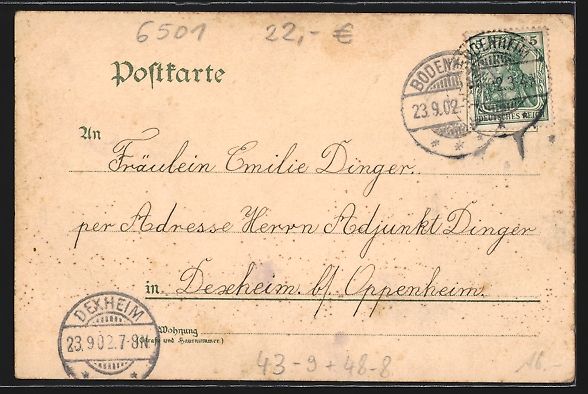 6501 22,- €
Postkarte
BODENHEIM
23.9.02.
5
DEUTSCHES REICH
An
Fräulein Emilie Dinger.
per Adresse Herrn Adjunkt Dinger
in Dexheim b/ Oppenheim.
Wohnung
(Straße und Hausnummer.)
DEXHEIM
23.9.02.7-8N.
43-9+48-8
16.-